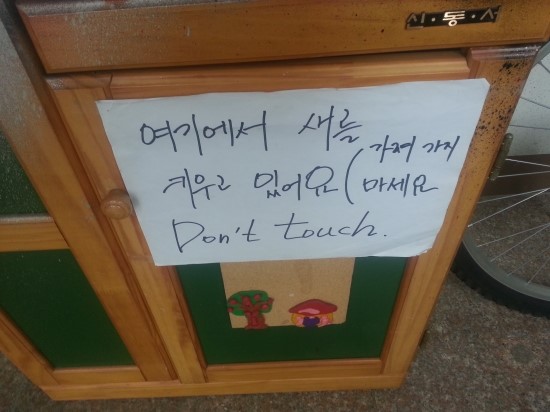 신·동·사
여기에서 새를
키우고 있어요 (가져 가지
마세요
Don't touch.